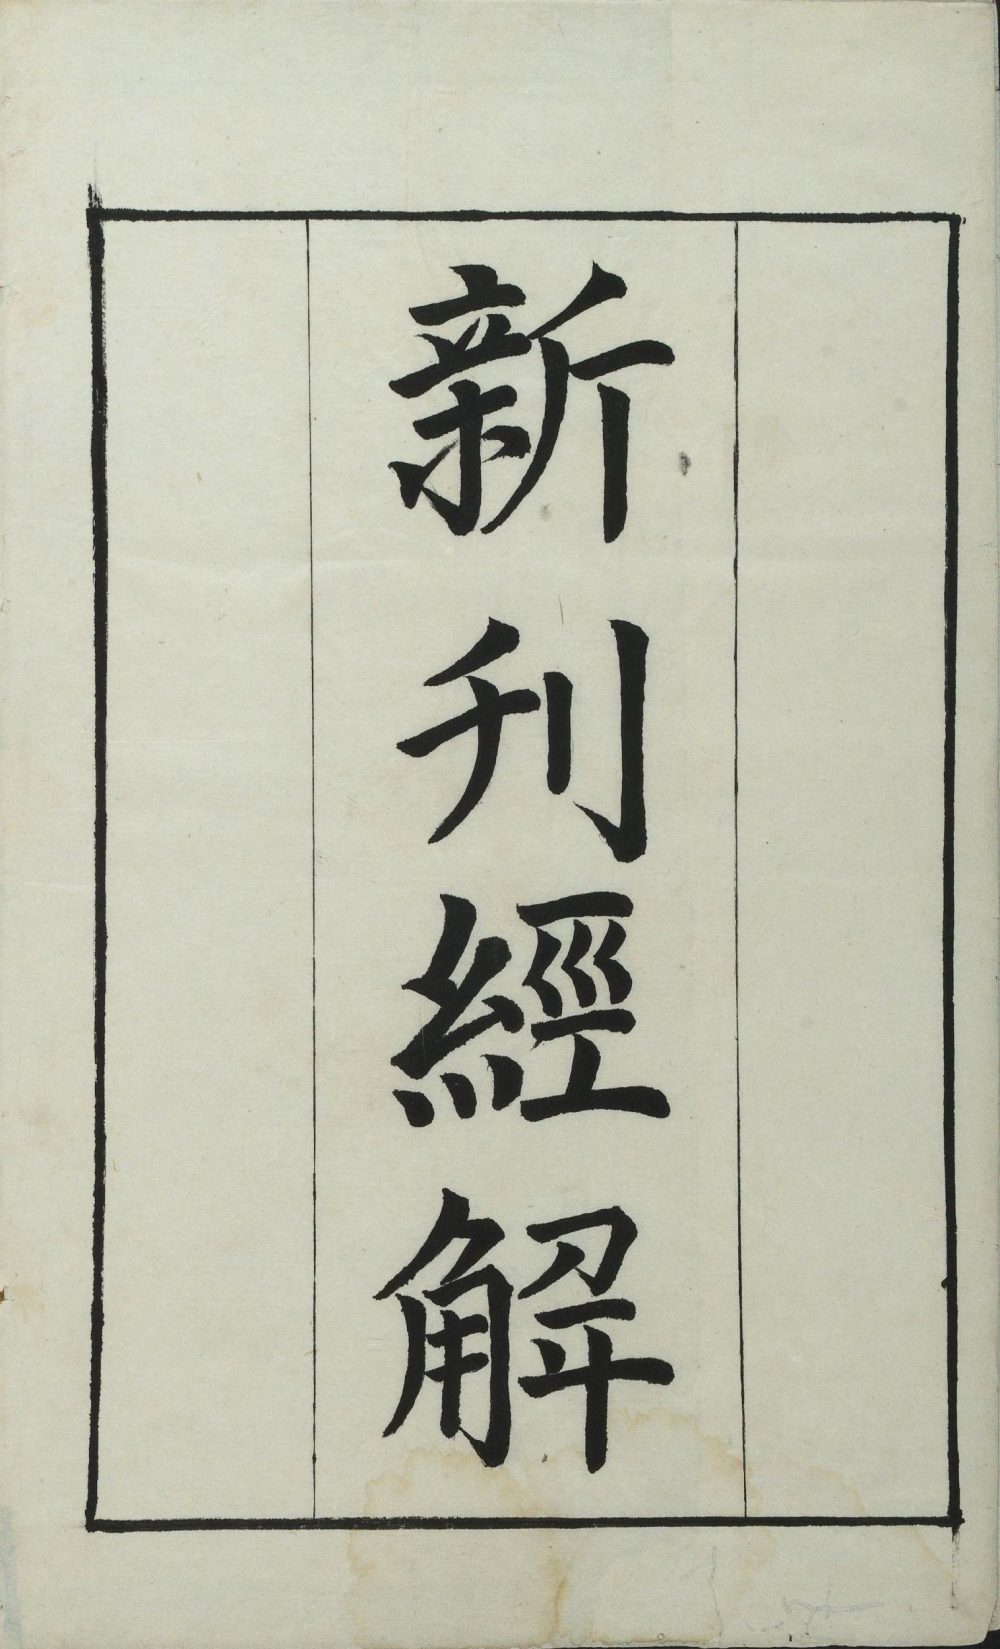 新刊經解